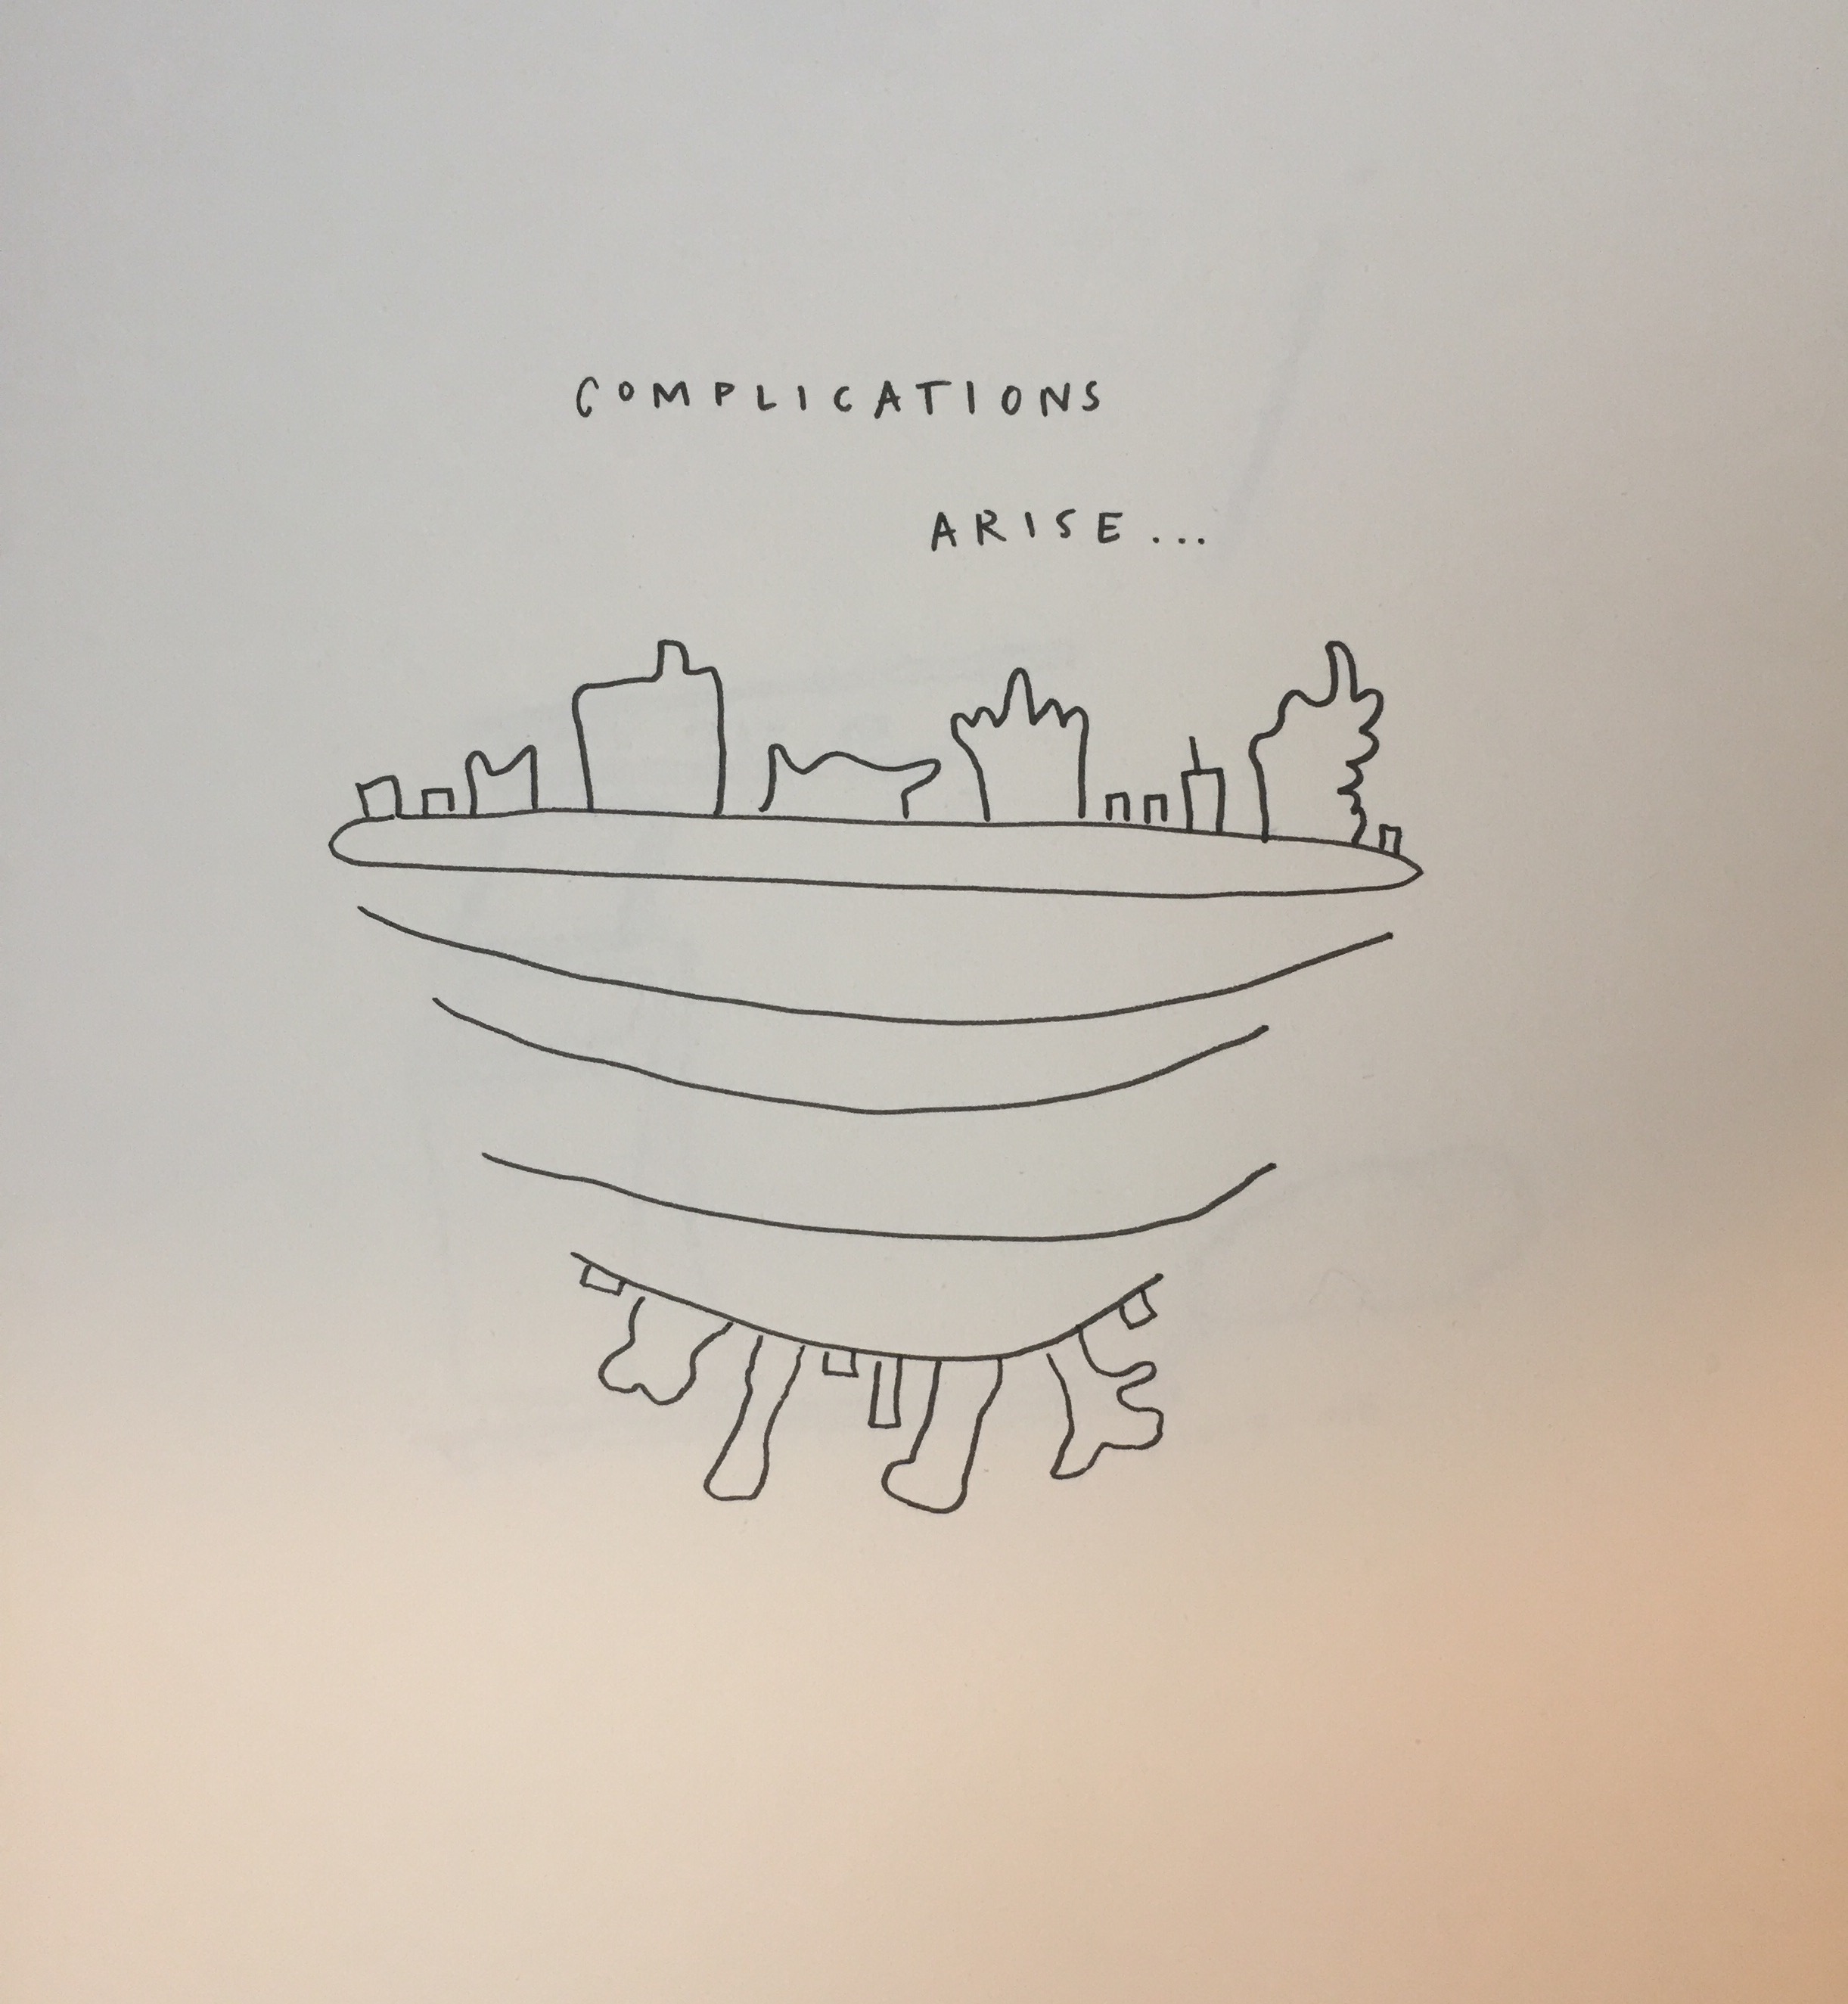 COMPLICATIONS
ARISE...